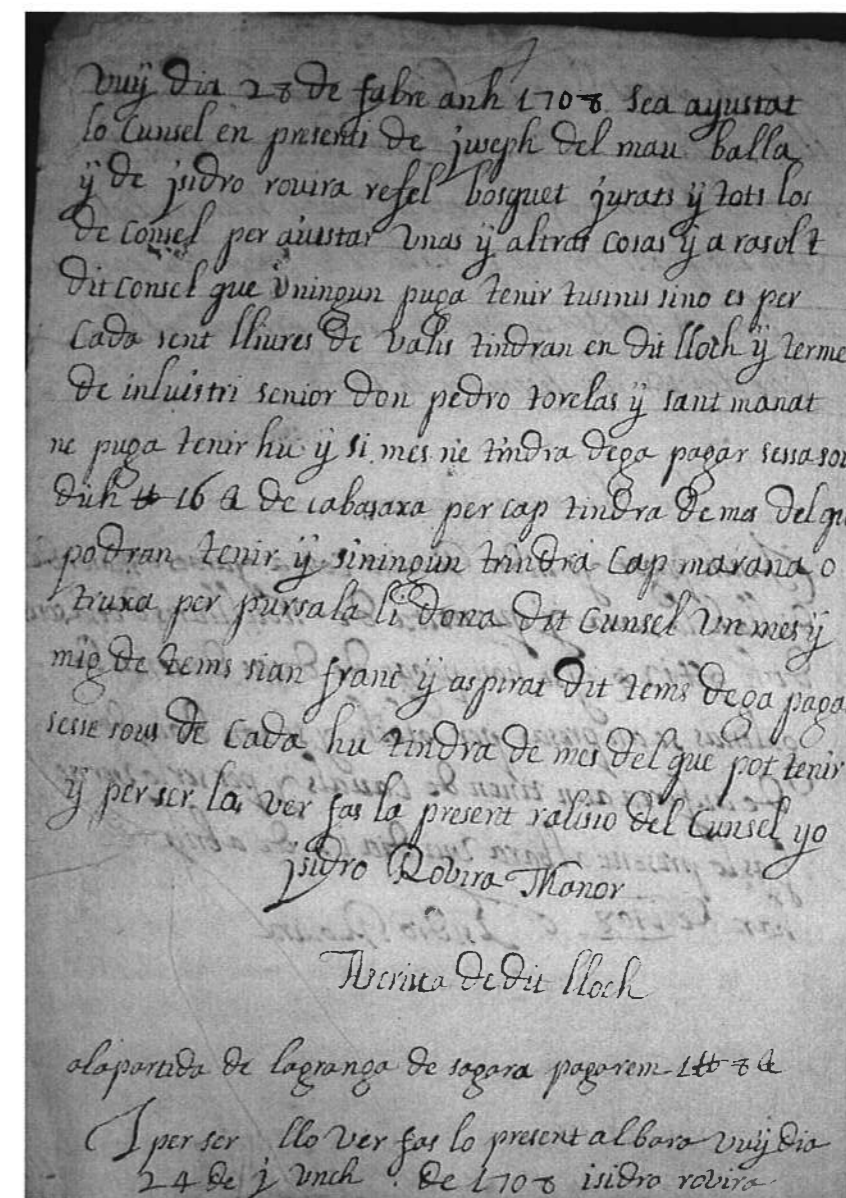 vuÿ dia 28 de fabre anh 1708 sea ayustat
lo Cunsel en presenti de juseph del mau balla
ÿ de jsidro rovira refel bosquet jurats ÿ tots los
de Consel per aiustar unas ÿ altras cosas ÿ a rasolt
dit Consel que ningun puga tenir tusinus sino es per
Cada sent lliures de valis tindran en dit lloch ÿ terme
de inluistri senior don pedro torelas ÿ sant manat
ne puga tenir hu ÿ si mes ne tindra dega pagar sessa sou
duh 16 de cabasaxa per cap tindra de mes del que
podran tenir ÿ siningun tindra Cap marana o
truxa per pursala li dona dit Cunsel un mes ÿ
mig de tems sian franc ÿ aspirat dit tems dega paga
sesse sous de Cada hu tindra de mes del que pot tenir
ÿ per ser las ver fas la present ralisio del Cunsel yo
jsidro Rovira Manor
de dit lloch
alapartida de lagranga de sagara pagarem 1 tt 8
I per ser llo ver fas lo present albara vuÿ dia
24 de j unch de 1708 isidro rovira